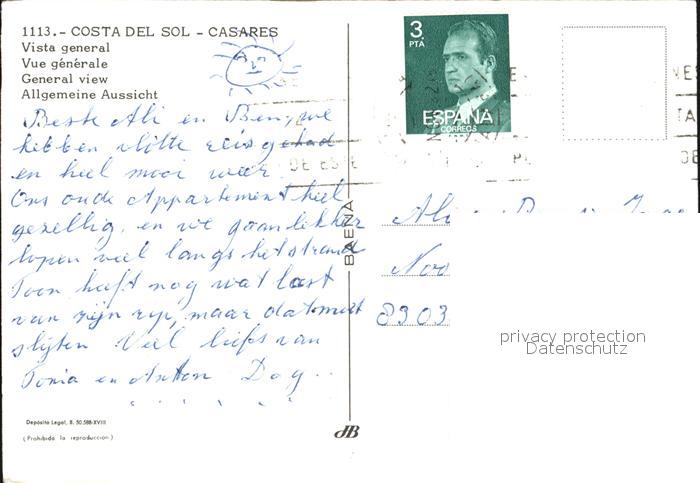 1113.- COSTA DEL SOL - CASARES
Vista general
Vue générale
General view
Allgemeine Aussicht
Beste Ali en Ben, we
hebben vlotte reis gehad
en heel mooi weer.
Ons oude Appartement heel
gezellig. en we gaan lekker
lopen veel langs het strand
Toon heeft nog wat last
van zijn rug, maar dat moet
slijten Veel liefs van
Tonia en Anton Dag..
Depósito Legal, B. 50.588-XVIII
(Prohibida la reproducción)
BAENA
JB
3 PTA
ESPAÑA
CORREOS
DE ES
Ali
Noo
8303
privacy protection
Datenschutz